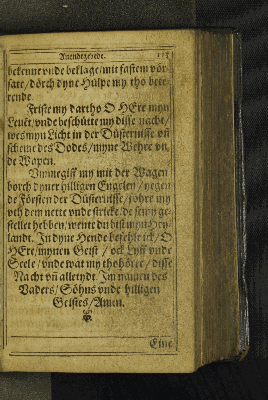 Auendtgebede.
bekenne vnde beklage/mit fastem vör-
sate/dörch dyne Hülpe my tho bete-
rende.
Friste my dartho O HEre myn
Leuēt/vnde beschütte my disse nacht/
wes myn Licht in der Düsternisse vñ
scheme des Dodes/myne Wehre vn-
de Wapen.
Vmmegiff my mit der Wagen
borch dyner hilligen Engelen/yegen
de Försten der Düsternisse/föhre my
vth dem nette vnde stricke/de se my ge-
stellet hebben/wente du bist myn Hey-
landt. In dyne Hende befehle ick/O
HEre/mynen Geist/ock Lyff vnde
Seele/vnde wat my thohöret/disse
Nacht vñ alletydt. Im namen des
Vaders/Söhns vnde hilligen
Geistes/Amen.
Eine